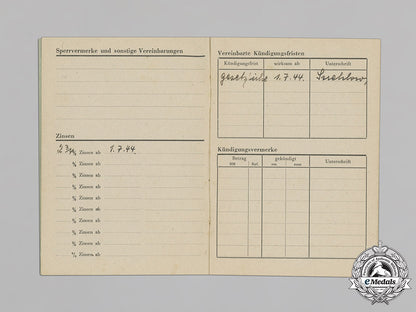 Sperrvermerke und sonstige Vereinbarungen
Zinsen
2 3/4 % Zinsen ab 1.7.44.
% Zinsen ab
% Zinsen ab
% Zinsen ab
% Zinsen ab
% Zinsen ab
% Zinsen ab
% Zinsen ab
% Zinsen ab
% Zinsen ab
Vereinbarte Kündigungsfristen
Kündigungsfrist wirksam ab Unterschrift
gesetzliche 1.7.44.
Kündigungsvermerke
Betrag gekündigt Unterschrift
RM Rpf. am zum
eMedals